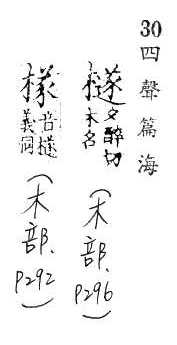 30
四聲篇海
檖夕醉切
木名
(木部. P296)
音檖
義同
(木部. P292)